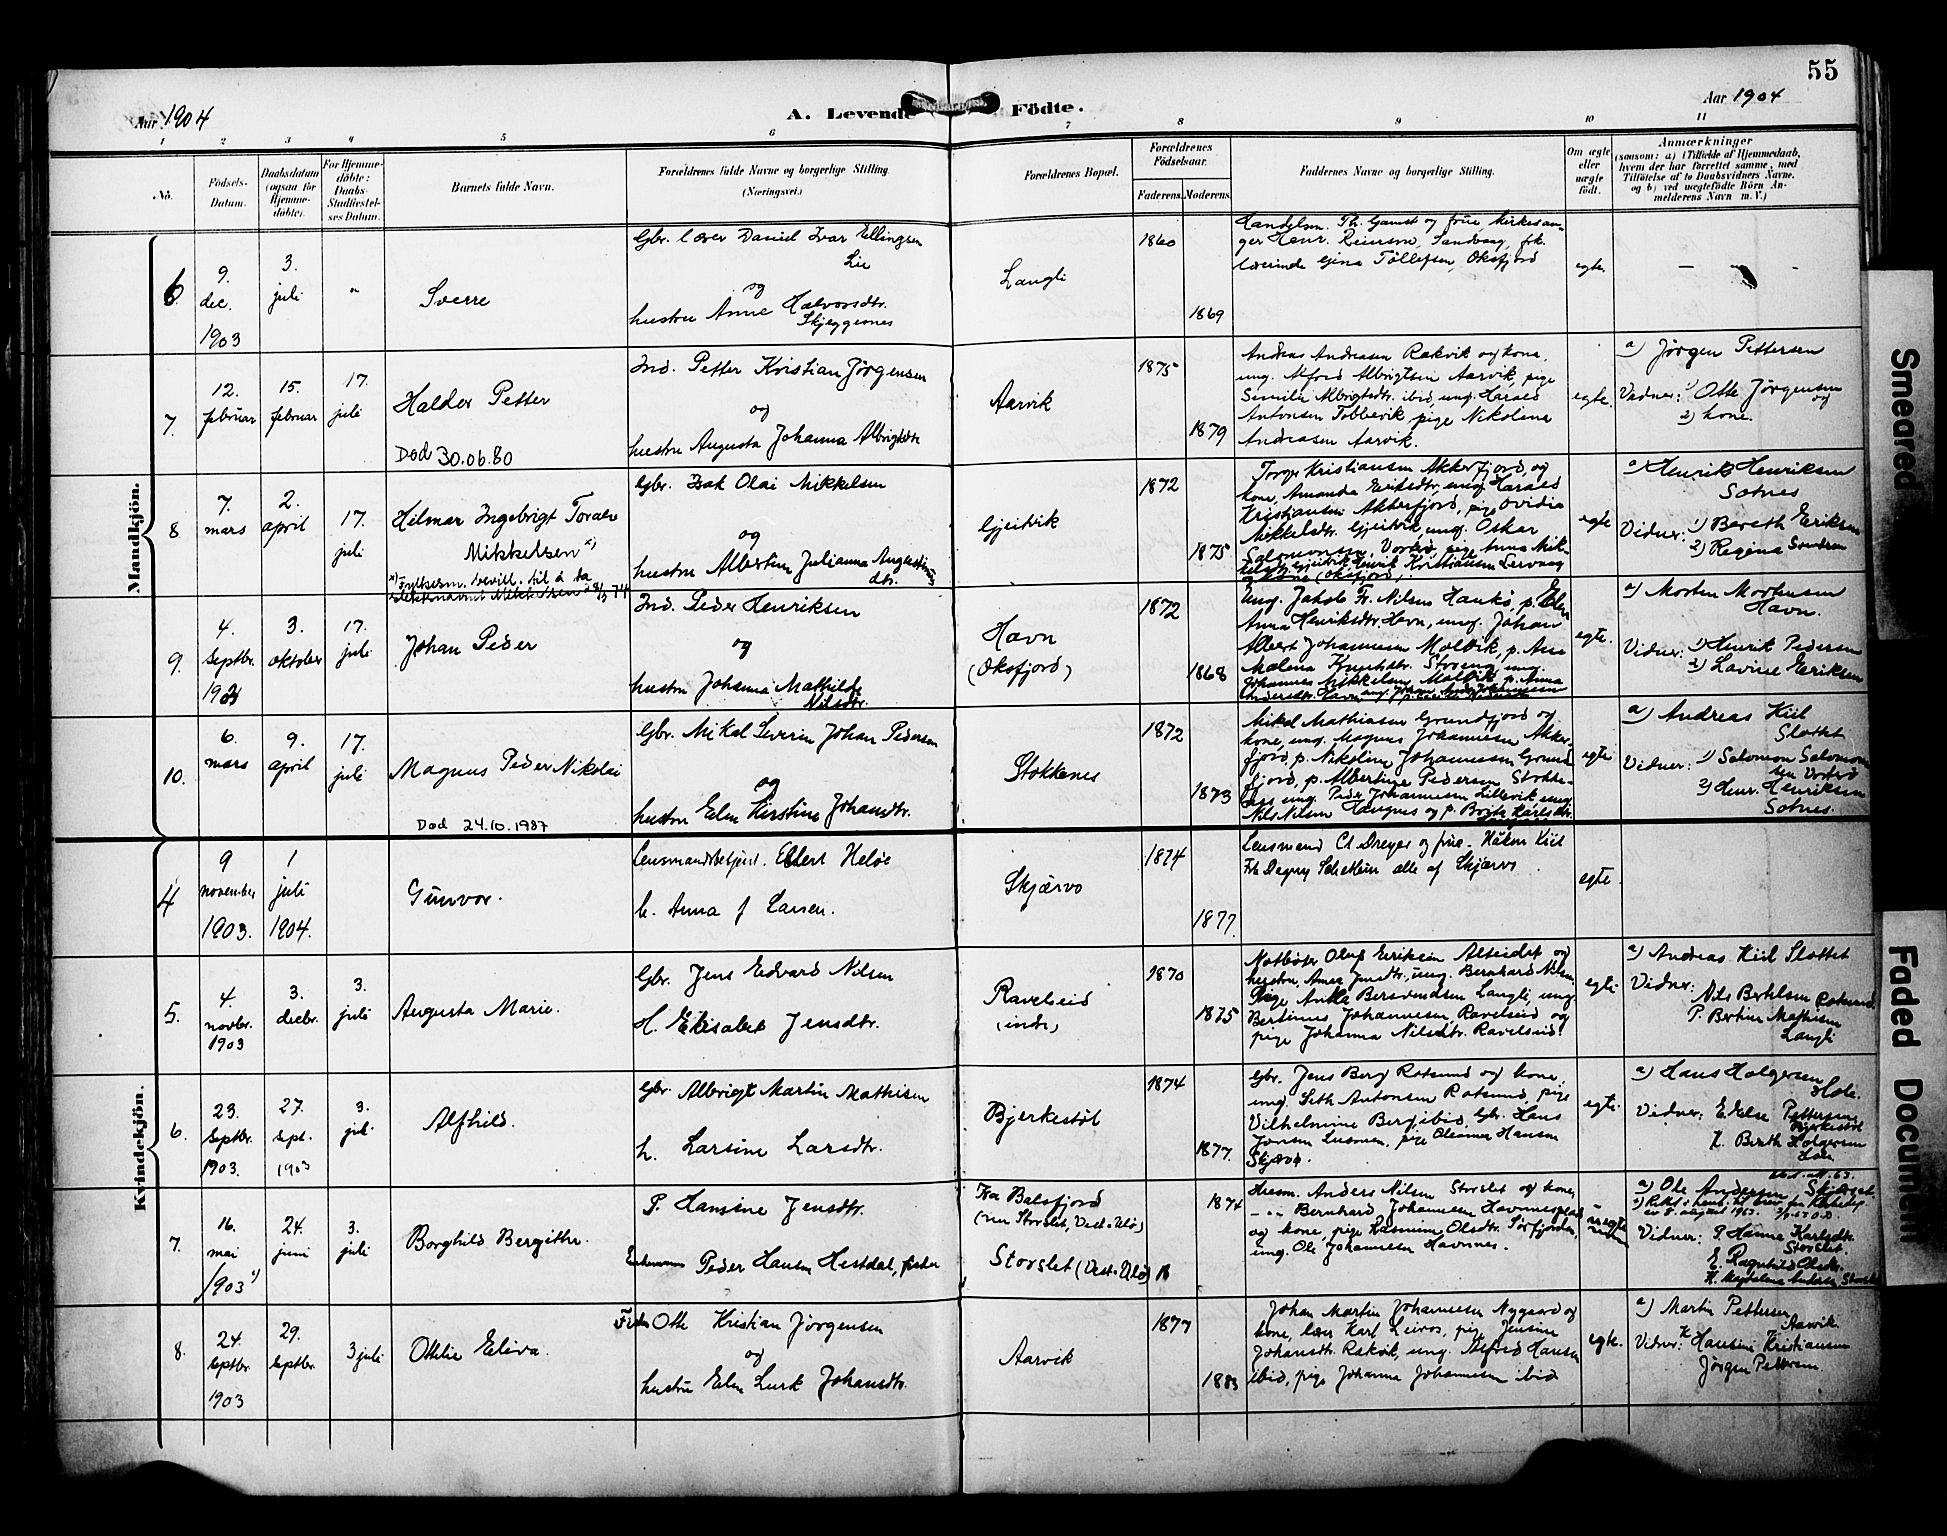 55
Aar 1904
A. Levende Födte.
Aar 1904
1 2 3 4 5 6 7 8 9 10 11
No.
Födsels-
Datum.
Daabsdatum
(ogsaa for
Hjemme-
döbte).
For Hjemme-
döbte:
Daabs-
Stadfæstel-
ses Datum.
Barnets fulde Navn.
Forældrenes fulde Navne og borgerlige Stilling.
(Næringsvei.)
Forældrenes Bopæl.
Forældrenes
Födselsaar.
Faderens.
Moderens.
Faddernes Navne og borgerlige Stilling.
Om ægte
eller
uægte
födt.
Anmærkninger
(saasom: a) i Tilfælde af Hjemmedaab,
hvem der har forrettet samme, med
Tilföielse af to Daabsvidners Navne.
og b) ved uægtefödte Börn An-
melderens Navn m. V.)
Mandkjön.
6
9.
dec.
1903
3.
juli
"
Sverre
Gbr. lærer Daniel Ivar Ellingsen
Lie
og
hustru Anne Halvorsdtr.
Skjeggesnes
Langli
1860
1869
Handelsm. Th. Gamst og frue Kirkesan-
ger Henr. Reiersen, Sandvaag, frk.
lærerinde Gina Tollefsen, Oksfjord
egte.
7.
12.
februar
15.
februar
17.
juli
Haldor Petter
Død 30.06.80
Ind. Petter Kristian Jørgensen
og
hustru Augusta Johanna Albrigtsdtr
Aarvik
1875
1879
Andreas Andreasen Rakvik og kone,
ung. Alfred Albrigtsen Aarvik, pige
Albrigtsdtr. ibid ung. Harald
Antonsen pige Nikoline
Andreasen Aarvik.
egte.
a) Jørgen Pettersen
Vidner: 1) Otto Jørgensen
og
2) kone.
8
7.
mars
2.
april
17.
juli
Hilmar Ingebrigt Toralv
Mikkelsen x)
x) Fylkesm. bevill. til å ta
slektsnavnet Mikkelsen
Gbr. Isak Olai Mikkelsen
og
hustru Albertine Julianna Augustinus
dtr.
Gjeitvik
1872
1875
Kristiansen Akkerfjord, og
kone, Amanda Eriksdtr, ung. Harald
Kristiansen Akkerfjord, pige Ovidia
Mikkelsdtr Gjeitvik, ung. Oskar
Salomonsen, Vorterø, pige Anna Mik-
Kristiansen Lervaag
og kone (Oksfjord).
egte
a) Henrik Henriksen
Sotnes
Vidner: 1) Bereth Eriksen
2) Regina
9.
4.
septbr.
1903
3.
oktober
17.
juli
Johan Peder
Ind. Peder Henriksen
og
hustru Johanna Mathilde
Nilsdtr.
Havn
(Oksfjord)
1872
1868
Ung. Jakob Fr. Nilsen Haukø, p. Elen
Anna Henriksdtr. Havn, ung. Johan
Albert Johannesen Molvik, p. Ane
Malena Knutsdtr. Storeng, ung.
Johannes Mikkelsen Molvik p. Anna
egte.
a) Morten Mortensen
Havn.
Vidner: 1) Henrik Pedersen
2) Lavine Eriksen
10.
6.
mars
9.
april
17.
juli
Magnus Peder Nikolai
Død 24.10.1987
Gbr. Mikal Severin Johan Pedersen
og
hustru Elen Kirstine Johansdtr.
Stokkenes
1872
1873
Mikal Mathiasen Grundfjord og
kone, ung. Magnus Johannesen Akker-
fjord, p. Nikoline Johannesen Grund-
fjord, p. Albertine Pedersen Stokke-
ung. Peder Johannesen Lillevik ung.
Nils Nilsen Haugnes og p. Karlsdtr.
egte
a) Andreas Kiil
Slottet
Vidner: 1) Salomon Salomon-
sen Vorterø
2) Henr. Henriksen
Sotnes.
Kvindekjön.
4
9
november
1903.
1
juli
1904.
Gunvor.
Lensmandsbetjent. Edert Heløe
h. Anna J Larsen.
Skjærvø
1874
1877.
Lensmand Cl. Dreyer og frue. Håkon Kiil
Frk Dagny alle af Skjærvø
egte.
5.
4.
novbr.
1903
3.
decbr.
3.
juli
Augusta Marie.
Gbr. Jens Edvard Nilsen
H. Elisabet Jensdtr.
Ravelseid
(indre)
1870
1875
Notbøter Oluf Eriksen Alteidet og
hustru, Anna Jensdtr., ung. Bernhard Nilsen
Pige Anna Berntsen Langli, ung.
Bertinus Johannesen Ravelseid og
pige Johanna Nilsdtr. Ravelseid.
egte
a) Andreas Kiil Slottet
Vidner:
Nils Bertelsen Rotsund
P. Bertine Mathisen
Langli
6.
23.
septbr.
1903.
27.
sept.
1903
3.
juli
Alfhild.
Gbr. Albrigt Martin Mathisen
h. Larsine Larsdtr.
Bjerkestøl
1874
1877.
Gbr. Jens Berg Rotsund og kone,
ung. Seth Antonsen Rotsund, pige
Vilhelmine Berg ibid, Gbr. Hans
Jonsen pige Hansen
Skjærvø.
egte.
a) Hans Holgersen
Hole.
Vidner: Edise Pettersen
Bjerkestøl
K. Berth Holgersen
Hole
7.
16.
mai
1903 1)
24.
juni
3.
juli
Borghild Bergithe.
P. Hansine Jensdtr.
Peder Hansen Hestdal, fisker
Fra Balsfjord
(nu Storslet, Vest-Uløy)
Storslet (Vest-Uløy)
1874
Husm. Anders Nilsen Storslet og kone,
— " — Bernhard Johannesen Havnnes
og kone, pige Rasmine Olsdtr. Sørfjorden,
ung. Ole Johannesen Havnnes.
uægte
a) Ole Andersen
Vidner: P. Hanna Karlsdtr
Storslet.
Ragnhild Olsdtr.
K. Magdalena Andersen Storslet
8.
24.
septbr.
1903
29.
septbr.
3 juli
Ottilie Eliva.
Fisker Otto Kristian Jørgensen
og
hustru Elen Lurk Johansdtr.
Aarvik
1877
1883
Johan Martin Johannesen Nygaard og
kone, lærer Karl Leiros, pige Jensine
Johansdtr. Rakvik, ung. Alfred Hansen
ibid, pige Johanna Johannesen ibid
egte.
a) Martin Pettersen
Aarvik.
Vidner: K Hansine Kristiansen
Jørgen Pettersen
Smeared
Faded Document